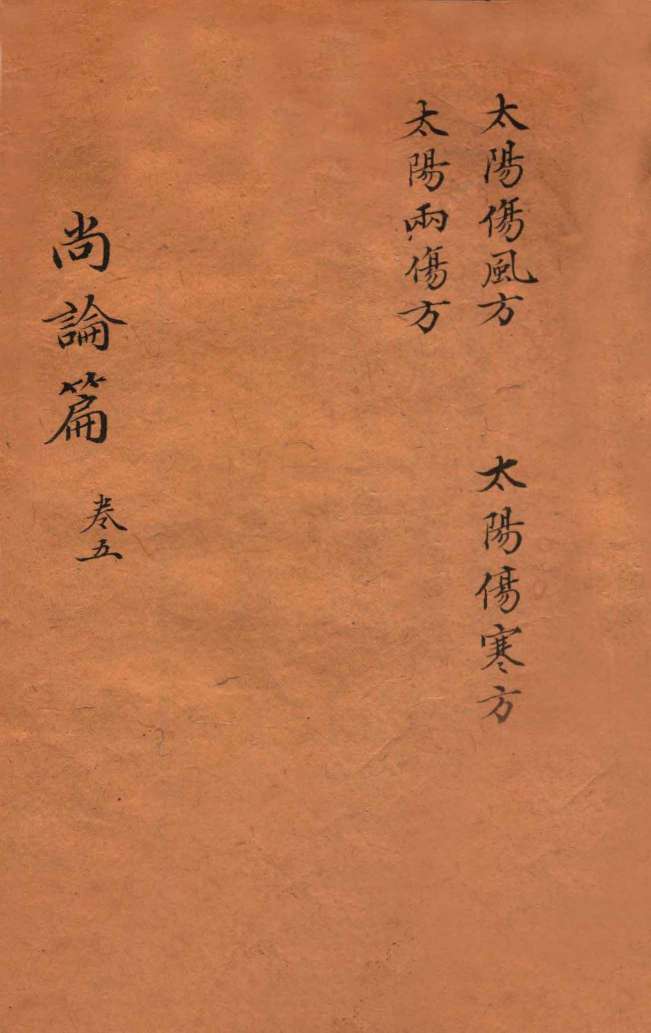 太陽傷風方　太陽傷寒方
太陽兩傷方
尚論篇 卷五